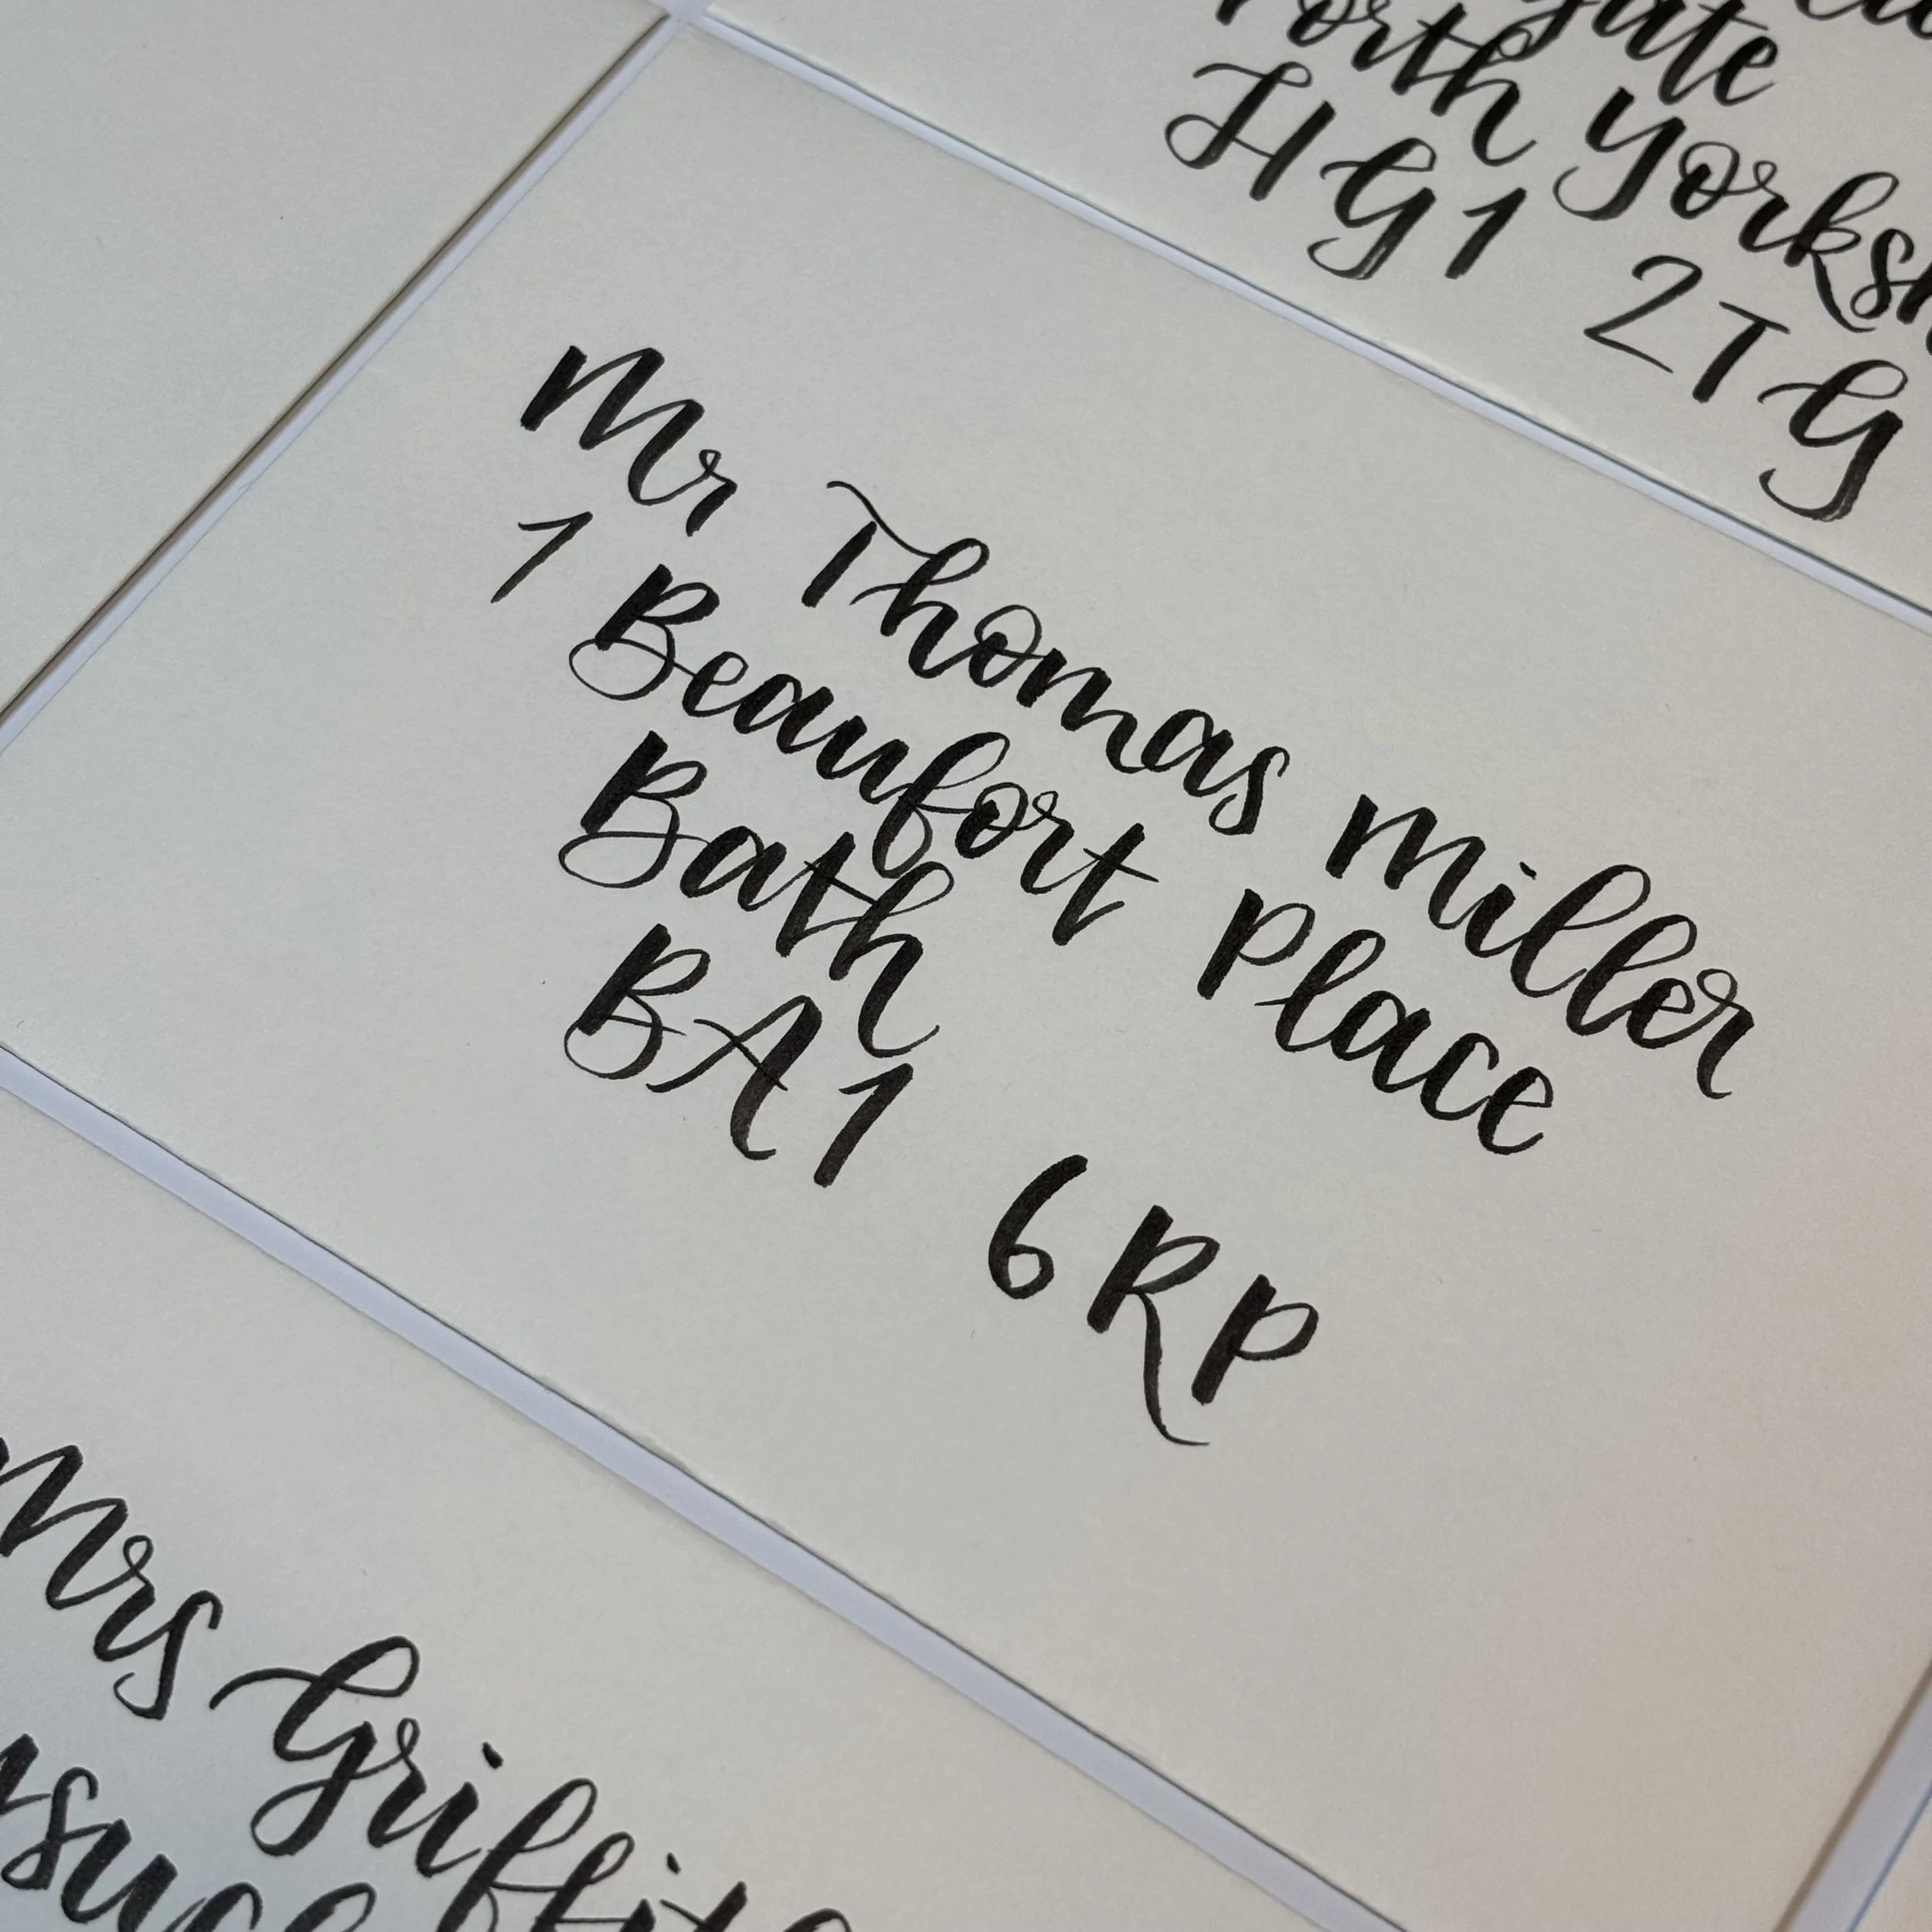 Yorksh
HG1 2TG
Mr Thomas Miller
1 Beaufort Place
Bath
BA1 6RP
Mrs Griffit